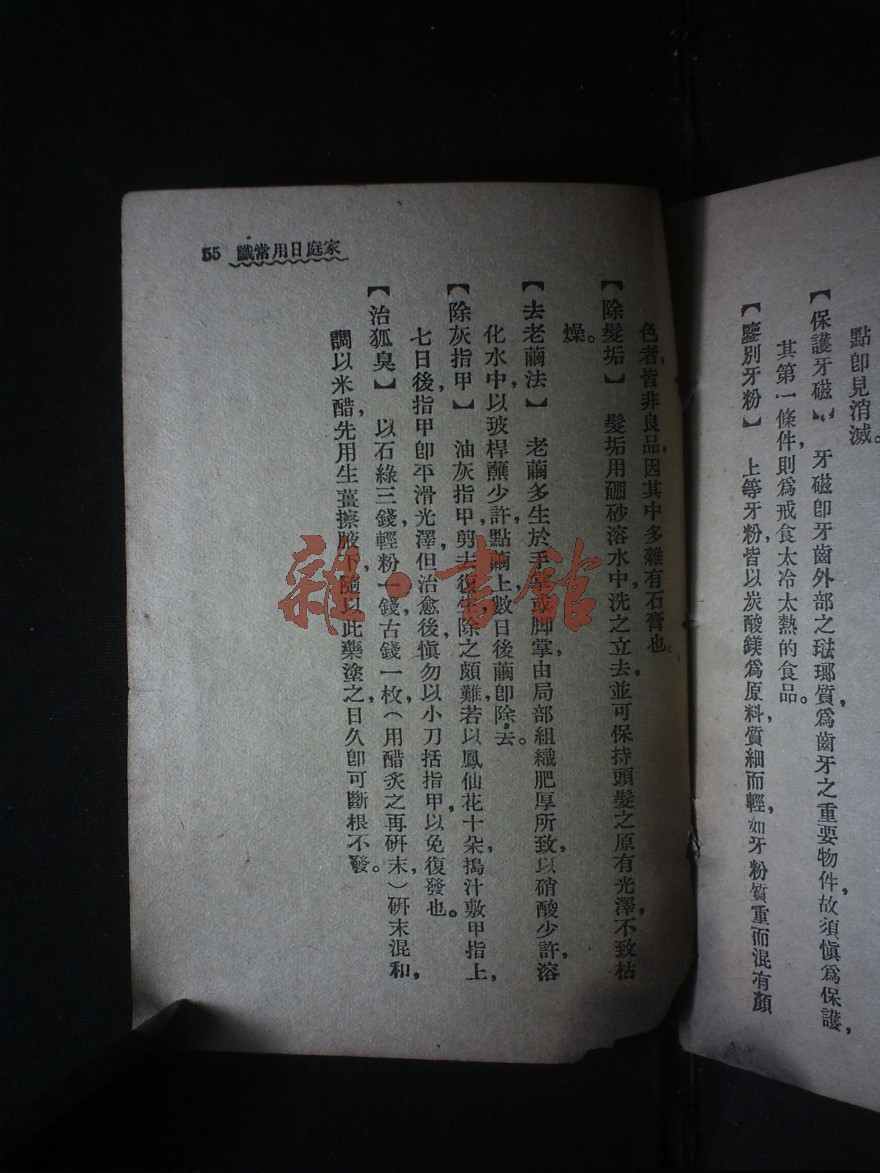 點卽見消滅。
【保護牙磁】 牙磁卽牙齒外部之琺瑯質爲齒牙之重要物件,故須愼爲保護,
其第一條件,則爲戒食太冷太熱的食品。
【鑒別牙粉】 上等牙粉,皆以炭酸鎂爲原料,質細而輕,如牙粉質重而混有顏
家庭日用常識 55
色者,皆非良品,因其中多雜有石膏也。
【除髮垢】 髮垢用硼砂溶水中洗之立去,並可保持頭髮之原有光澤,不致枯
燥。
【去老繭法】 老繭多生於手掌或脚掌,由局部組織肥厚所致,以硝酸少許,溶
化水中,以玻桿蘸少許,點繭上,數日後繭卽除去。
【除灰指甲】 油灰指甲,剪去復生,除之頗難,若以鳳仙花十朵,搗汁敷甲指上,
七日後,指甲卽平滑光澤,但治愈後,愼勿以小刀括指甲,以免復發也。
【治狐臭】 以石綠三錢,輕粉一錢,古錢一枚(用醋炙之再硏末)硏末混和,
調以米醋,先用生薑擦腋下,隨以此藥塗之,日久卽可斷根不發。
雜·書館